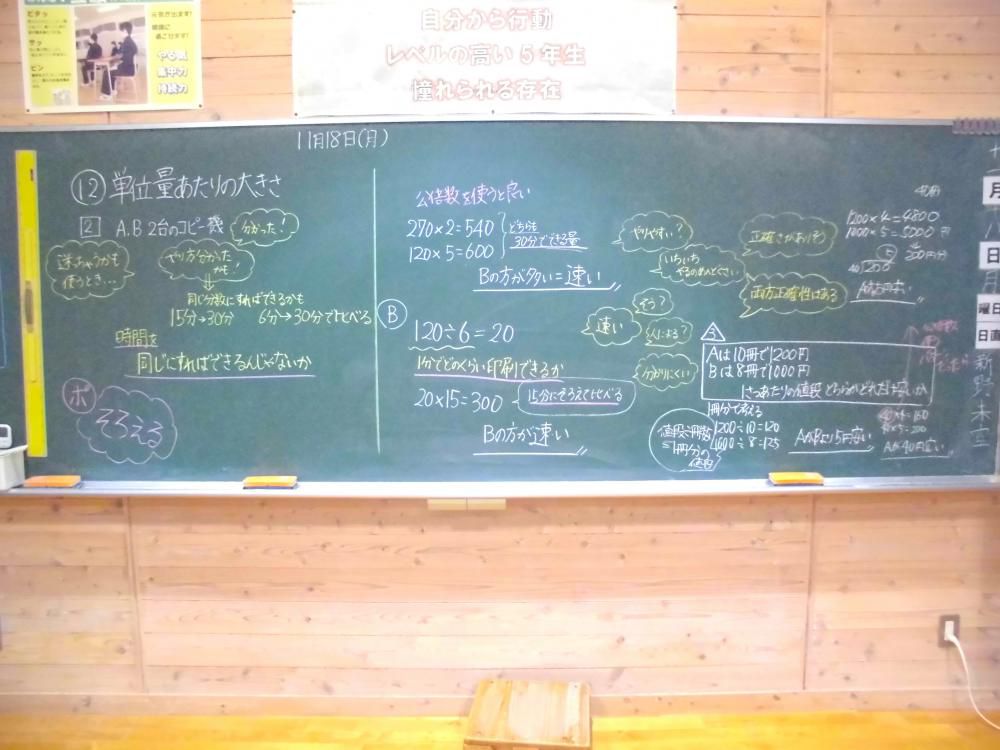 自分から行動
レベルの高い5年生
憧れられる存在
ピタッ
サッ
ピン
元気が出ます!
やる気
集中力
持続力
11月18日(月)
⑫ 単位量あたりの大きさ
2 A,B 2台のコピー機
分かった!
迷っちゃうかも
使うとき…
やり方分かった
かも!
同じ分数にすればできるかも
15分→30分 6分→30分で比べる
時間を
同じにすればできるんじゃないか
ポ
そろえる
公倍数を使うと良い
270×2=540
120×5=600
どちらも
30分でできる量
Bの方が多い=速い
B
120÷6=20
1分でどのくらい印刷できるか
20×15=300
15分にそろえて比べる
Bの方が速い
やりやすい?
いちいち
やるのめんどくさい
正確さがありそう
両方正確性はある
速い
そう?
人による?
分かりにくい
1200×4=4800
1000×5=5000円
40
200
3
Aは10冊で1200円
Bは8冊で1000円
1さつあたりの値段 どちらがどれだけ安いか
1冊分で考える
1200÷10=120
1000÷8=125
値段÷冊数
=1冊分の
値段
AがBより5円安い
Aが40円安い
月
日
曜日
日直